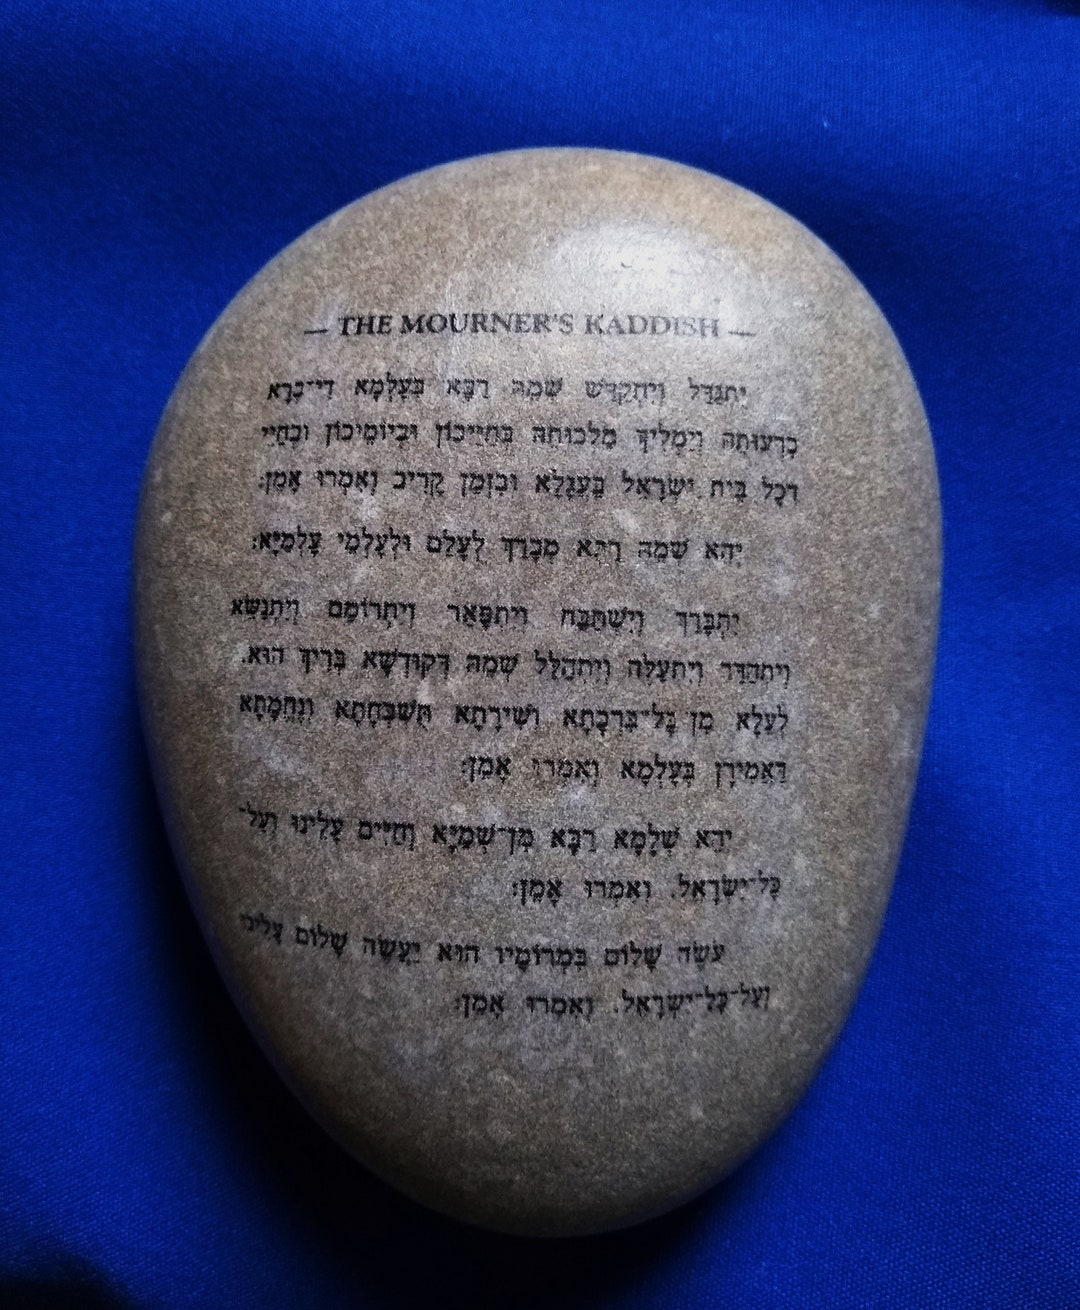 — THE MOURNER'S KADDISH —
יִתְגַּדַּל וְיִתְקַדַּשׁ שְׁמֵהּ רַבָּא בְּעָלְמָא דִּי־בְרָא
כִרְעוּתֵהּ וְיַמְלִיךְ מַלְכוּתֵהּ בְּחַיֵּיכוֹן וּבְיוֹמֵיכוֹן וּבְחַיֵּי
דְכָל בֵּית יִשְׂרָאֵל בַּעֲגָלָא וּבִזְמַן קָרִיב וְאִמְרוּ אָמֵן:
יְהֵא שְׁמֵהּ רַבָּא מְבָרַךְ לְעָלַם וּלְעָלְמֵי עָלְמַיָּא:
יִתְבָּרַךְ וְיִשְׁתַּבַּח וְיִתְפָּאַר וְיִתְרוֹמַם וְיִתְנַשֵּׂא
וְיִתְהַדַּר וְיִתְעַלֶּה וְיִתְהַלַּל שְׁמֵהּ דְּקוּדְשָׁא בְּרִיךְ הוּא.
לְעֵלָּא מִן כָּל־בִּרְכָתָא וְשִׁירָתָא תֻּשְׁבְּחָתָא וְנֶחֱמָתָא
דַּאֲמִירָן בְּעָלְמָא וְאִמְרוּ אָמֵן:
יְהֵא שְׁלָמָא רַבָּא מִן־שְׁמַיָּא וְחַיִּים עָלֵינוּ וְעַל־
כָּל־יִשְׂרָאֵל. וְאִמְרוּ אָמֵן:
עֹשֶׂה שָׁלוֹם בִּמְרוֹמָיו הוּא יַעֲשֶׂה שָׁלוֹם עָלֵינוּ
וְעַל־כָּל־יִשְׂרָאֵל. וְאִמְרוּ אָמֵן: